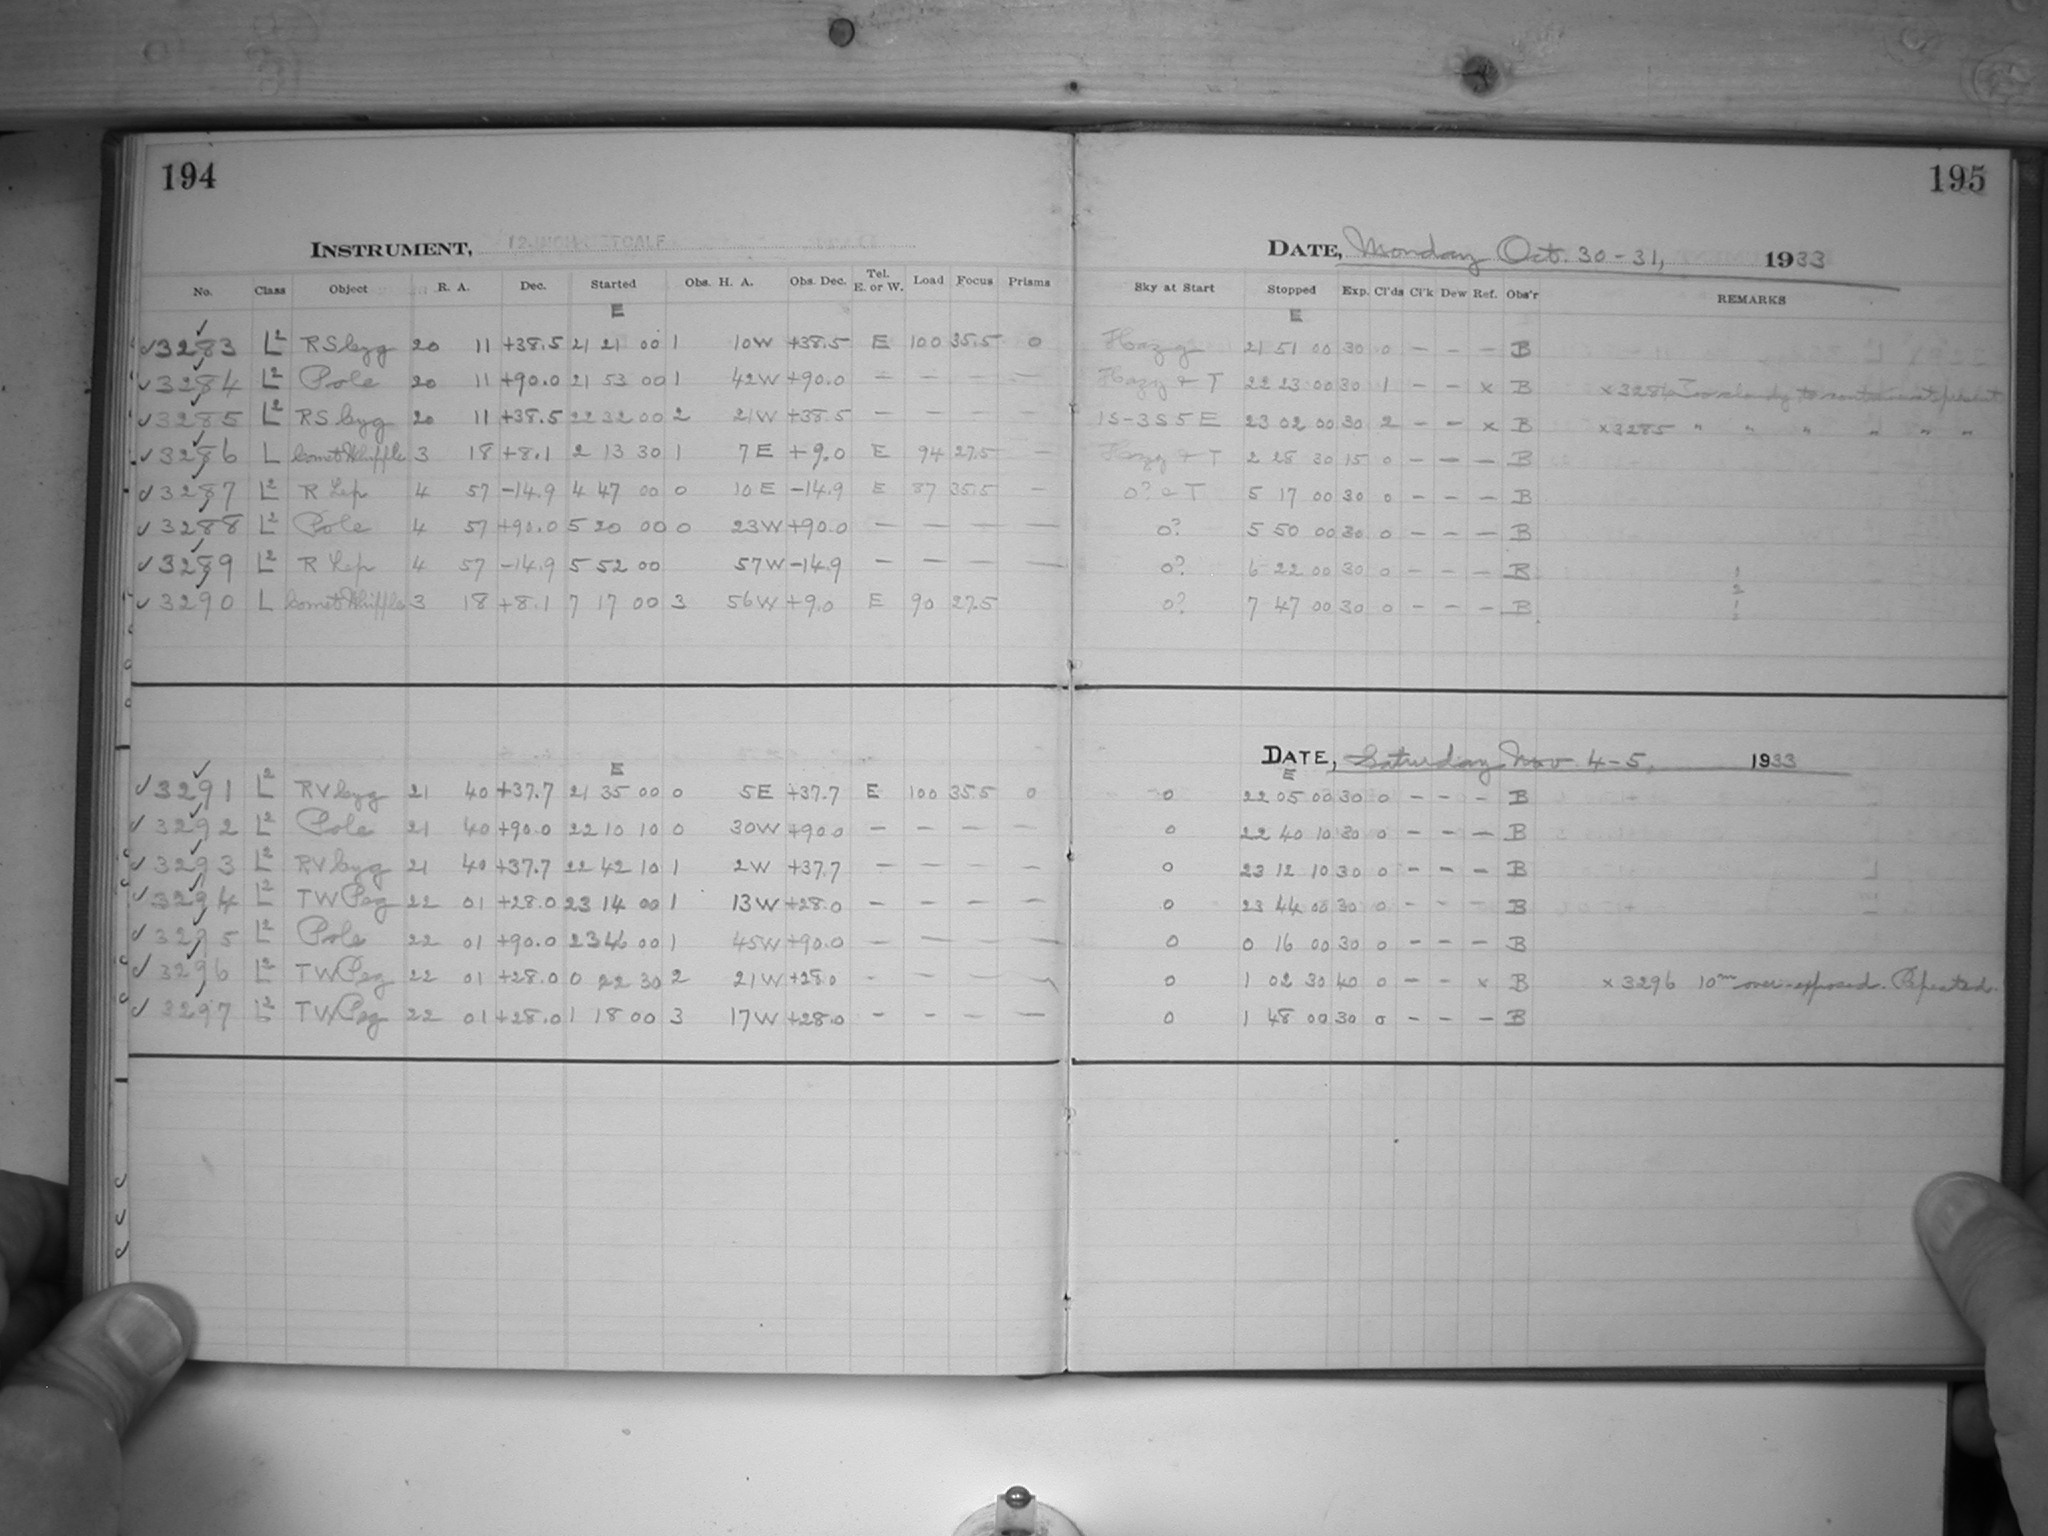 194
195
INSTRUMENT, 12-INCH METCALF
DATE, Monday Oct. 30-31, 1933
No. Class Object R. A. Dec. Started Obs. H. A. Obs. Dec. Tel. E. or W. Load Focus Prisms Sky at Start Stopped Exp. Cl'ds Cl'k Dew Ref. Obs'r REMARKS
E E
√3283 L² RS Cyg 20 11 +38.5 21 21 00 1 10W +38.5 E 100 35.5 0 Hazy 21 51 00 30 0 - - - B
√3284 L² Pole 20 11 +90.0 21 53 00 1 42W +90.0 - - - - Hazy & T 22 23 00 30 1 - - x B x3284 Too cloudy to continue at present
√3285 L² RS Cyg 20 11 +38.5 22 32 00 2 21W +38.5 - - - - 1S-3S 5 E 23 02 00 30 2 - - x B x3285 " " " " " "
√3286 L Comet Whipple 3 18 +8.1 2 13 30 1 7E +9.0 E 94 27.5 - Hazy & T 2 28 30 15 0 - - - B
√3287 L² R Lep 4 57 -14.9 4 47 00 0 10E -14.9 E 87 35.5 - 0? & T 5 17 00 30 0 - - - B
√3288 L² Pole 4 57 +90.0 5 20 00 0 23W +90.0 - - - - 0? 5 50 00 30 0 - - - B
√3289 L² R Lep 4 57 -14.9 5 52 00 57W -14.9 - - - - 0? 6 22 00 30 0 - - - B
√3290 L Comet Whipple 3 18 +8.1 7 17 00 3 56W +9.0 E 90 27.5 0? 7 47 00 30 0 - - - B
DATE, Saturday Nov 4-5, 1933
E E
√3291 L² RV Cyg 21 40 +37.7 21 35 00 0 5E +37.7 E 100 35.5 0 0 22 05 00 30 0 - - - B
√3292 L² Pole 21 40 +90.0 22 10 10 0 30W +90.0 - - - - 0 22 40 10 30 0 - - - B
√3293 L² RV Cyg 21 40 +37.7 22 42 10 1 2W +37.7 - - - - 0 23 12 10 30 0 - - - B
√3294 L² TW Peg 22 01 +28.0 23 14 00 1 13W +28.0 - - - - 0 23 44 00 30 0 - - - B
√3295 L² Pole 22 01 +90.0 23 46 00 1 45W +90.0 - - - - 0 0 16 00 30 0 - - - B
√3296 L² TW Peg 22 01 +28.0 0 22 30 2 21W +28.0 - - - - 0 1 02 30 40 0 - - x B x3296 10ᵐ over-exposed. Repeated.
√3297 L² TW Peg 22 01 +28.0 1 18 00 3 17W +28.0 - - - - 0 1 48 00 30 0 - - - B